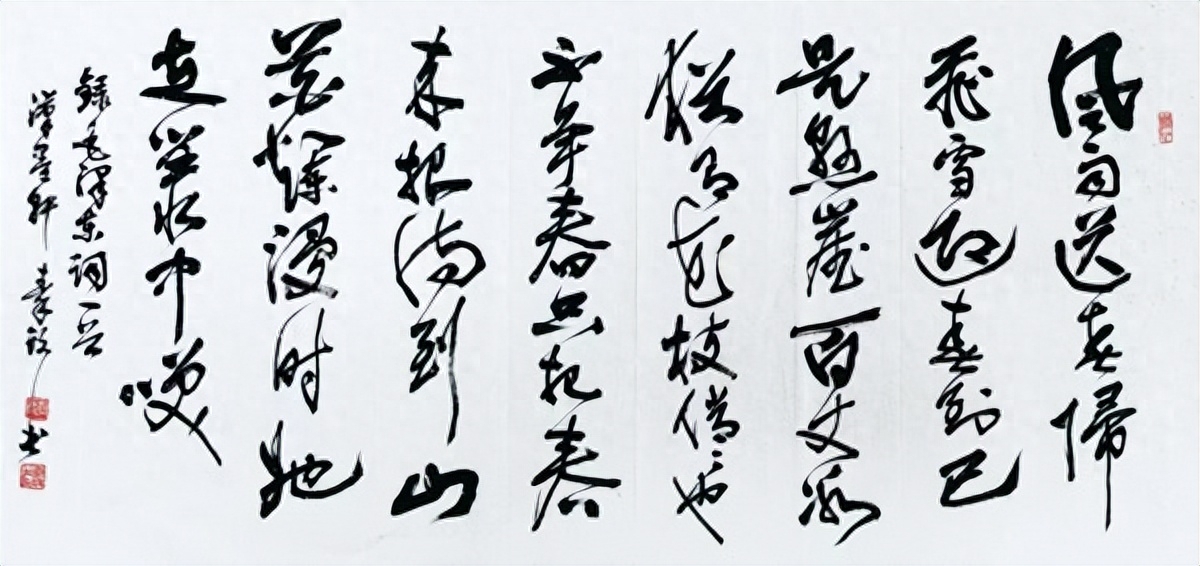 风雨送春歸
飛雪迎春到已
是懸崖百丈冰
猶有花枝俏〻也
不争春只把春
来报待到山
花爛漫时她
在丛中笑
録毛泽东词一首
墨轩 书